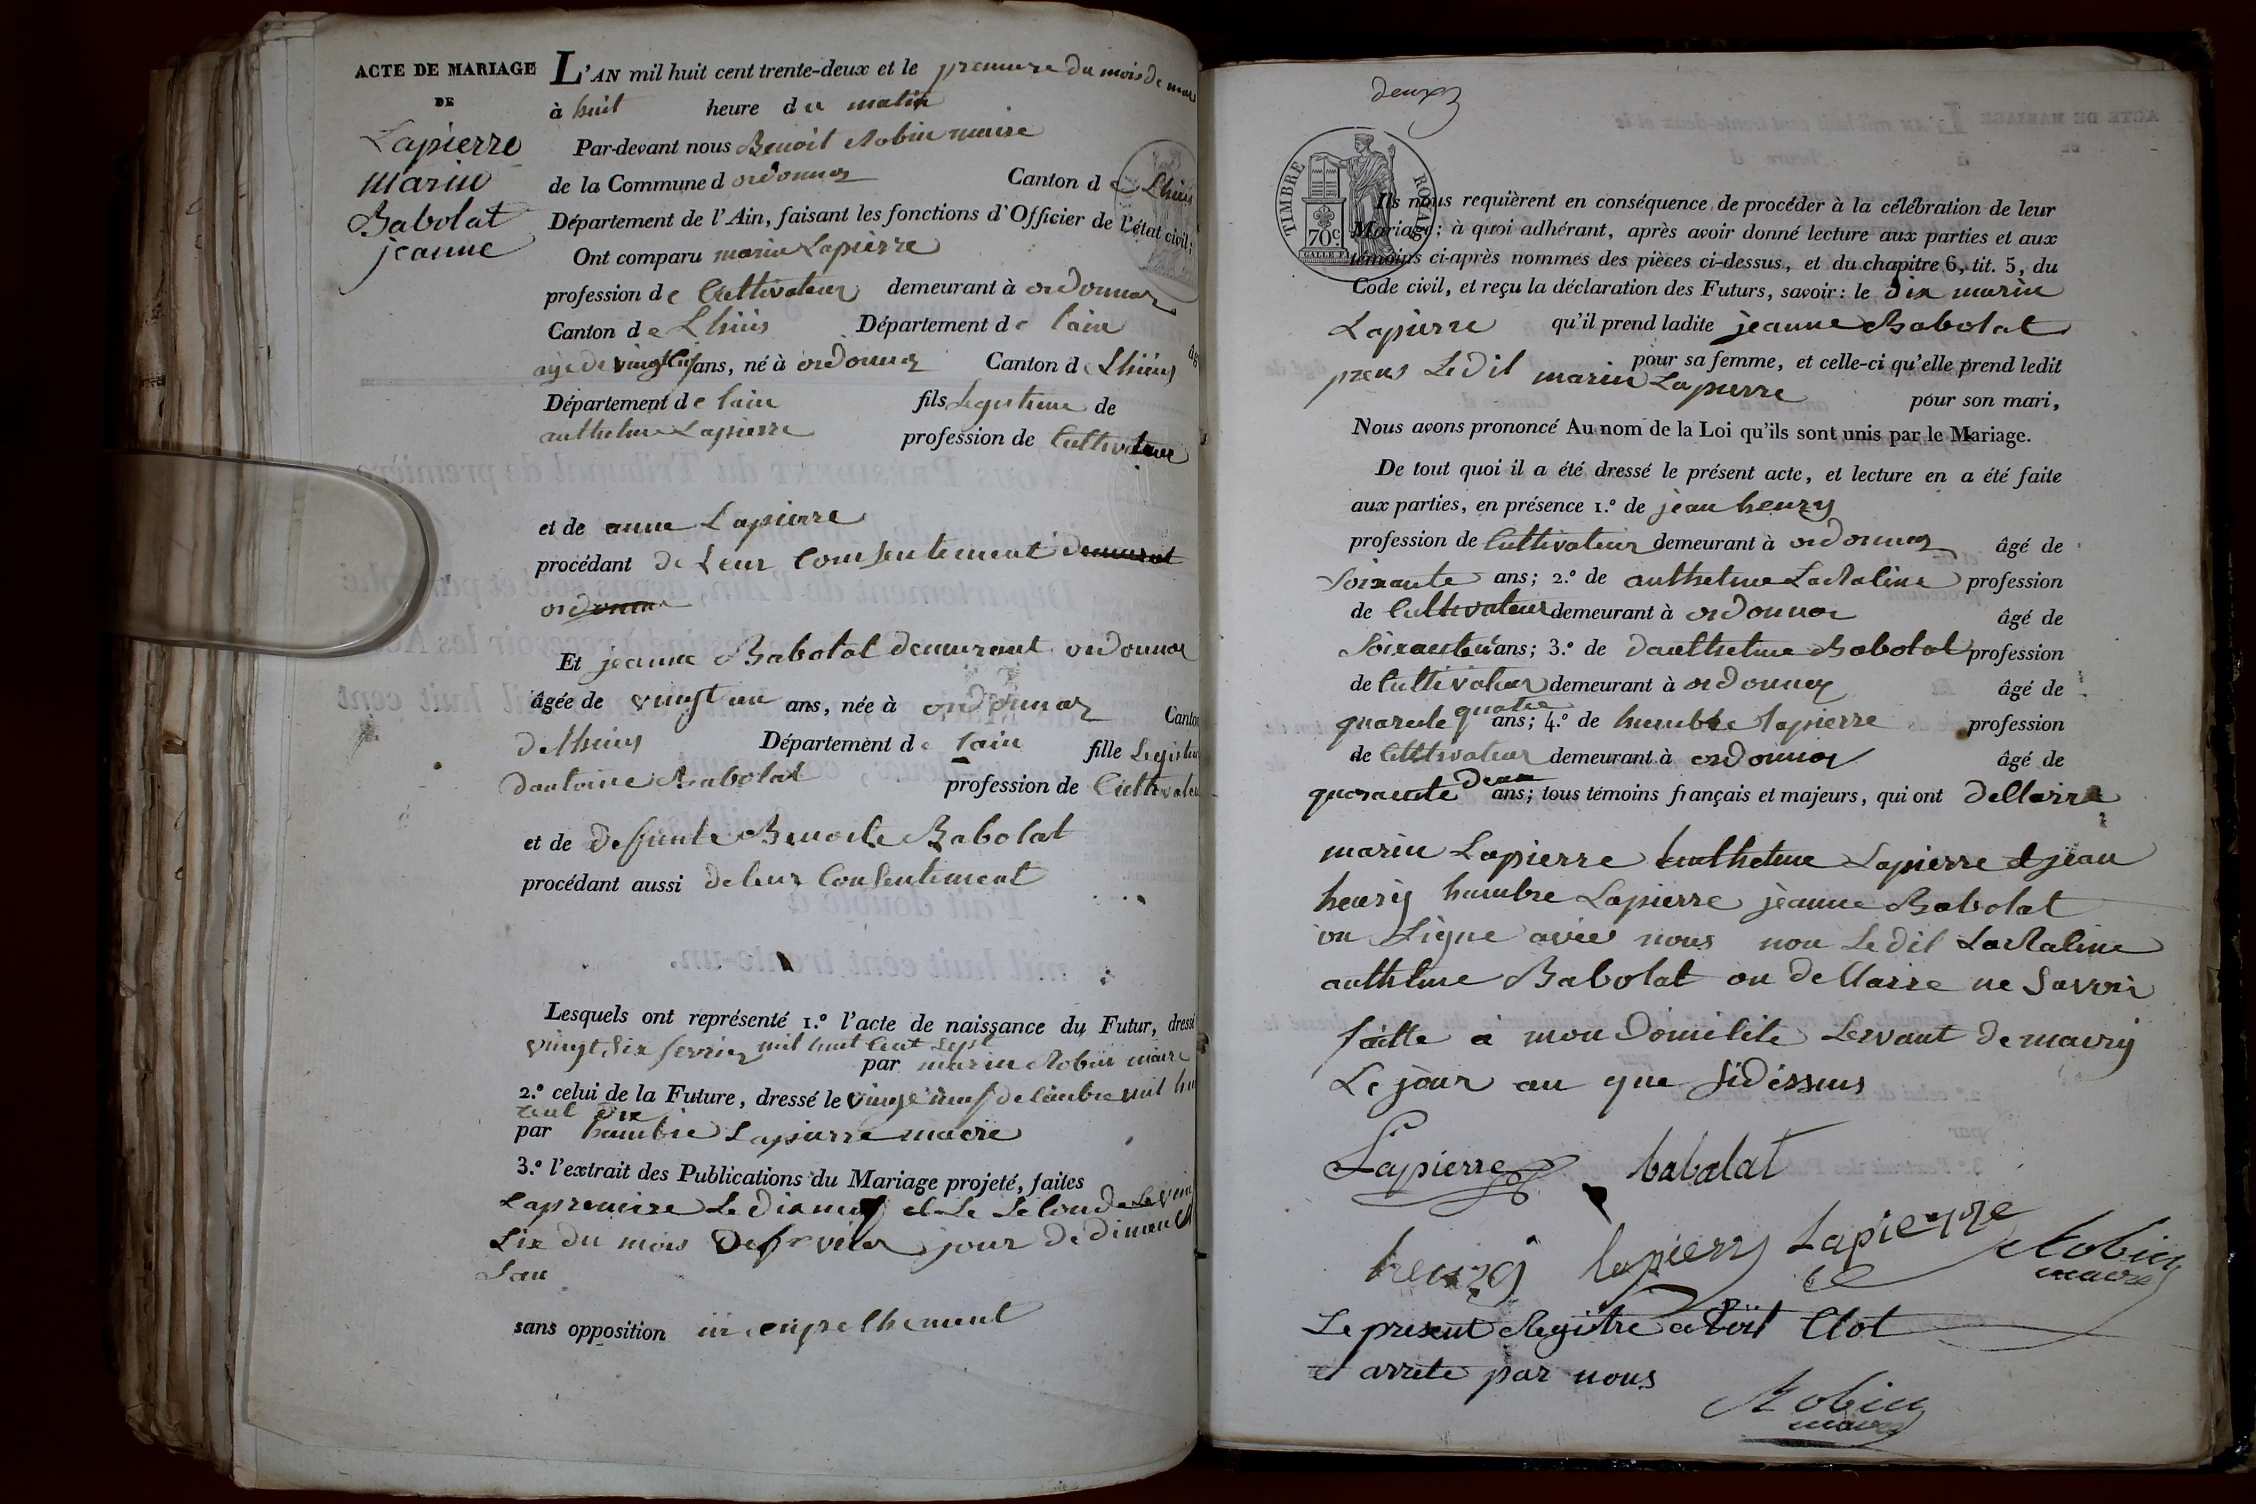 ACTE DE MARIAGE
DE
Lapierre
marin
Babolat
jeanne
L'AN mil huit cent trente-deux et le premiere du mois de
à huit heure du matin
Par-devant nous Benoit Robin maire
de la Commune d ordonnaz Canton de Lhuis
Département de l'Ain, faisant les fonctions d'Officier de l'état civil;
Ont comparu marin Lapierre
profession de Cultivateur demeurant à ordonnaz
Canton de Lhuis Département de lain
age de ans, né à ordonnaz Canton de Lhuis
Département de lain fils Legitime de
anthelme Lapierre profession de Cultivateur
et de anne Lapierre
procédant de Leur Consentement demurant
ordonna
Et jeanne Babolat demurant ordonnaz
âgée de vingt un ans, née à ordonnaz Canton
de lhuis Département de lain fille
dantoine Babolat profession de
et de defunte Benoite Babolat
procédant aussi de leur Consentement
Lesquels ont représenté 1.º l'acte de naissance du Futur, dressé
vingt six fevrier mil huit Cent sept
par marin Robin maire
2.º celui de la Future, dressé le vingt neuf mil
cent dix
par humbre Lapierre maire
3.º l'extrait des Publications du Mariage projeté, faites
La premiere Le dix neuf et Le Seconde Le
Six du mois De fevrier jour de
sans opposition ni empechement
deux
TIMBRE ROYAL
70c
Ils nous requièrent en conséquence de procéder à la célébration de leur
Mariage; à quoi adhérant, après avoir donné lecture aux parties et aux
témoins ci-après nommés des pièces ci-dessus, et du chapitre 6, tit. 5, du
Code civil, et reçu la déclaration des Futurs, savoir: le dix marin
Lapierre qu'il prend ladite jeanne Babolat
pour sa femme, et celle-ci qu'elle prend ledit
prens Ledit marin Lapierre pour son mari,
Nous avons prononcé Au nom de la Loi qu'ils sont unis par le Mariage.
De tout quoi il a été dressé le présent acte, et lecture en a été faite
aux parties, en présence 1.º de jean henry
profession de Cultivateur demeurant à ordonnaz âgé de
Soixante ans; 2.º de anthelme profession
de Cultivateur demeurant à ordonnaz âgé de
ans; 3.º de danthelme Babolat profession
de Cultivateur demeurant à ordonnaz âgé de
quarente quatre ans; 4.º de humbre Lapierre profession
de Cultivateur demeurant à ordonnaz âgé de
quarante deux ans; tous témoins français et majeurs, qui ont dellarre
marin Lapierre anthelme Lapierre et jean
henry humbre Lapierre jeanne Babolat
on Signe avec nous non Ledit
anthelme Babolat on dellarre ne Savoir
faitte a mon Domilile Servant de mairy
Le jour an que sidessus
Lapierre babolat
henry lapierre Lapierre Robin
maire
Le present Registre a etè Clot
et arrete par nous
Robin
maire